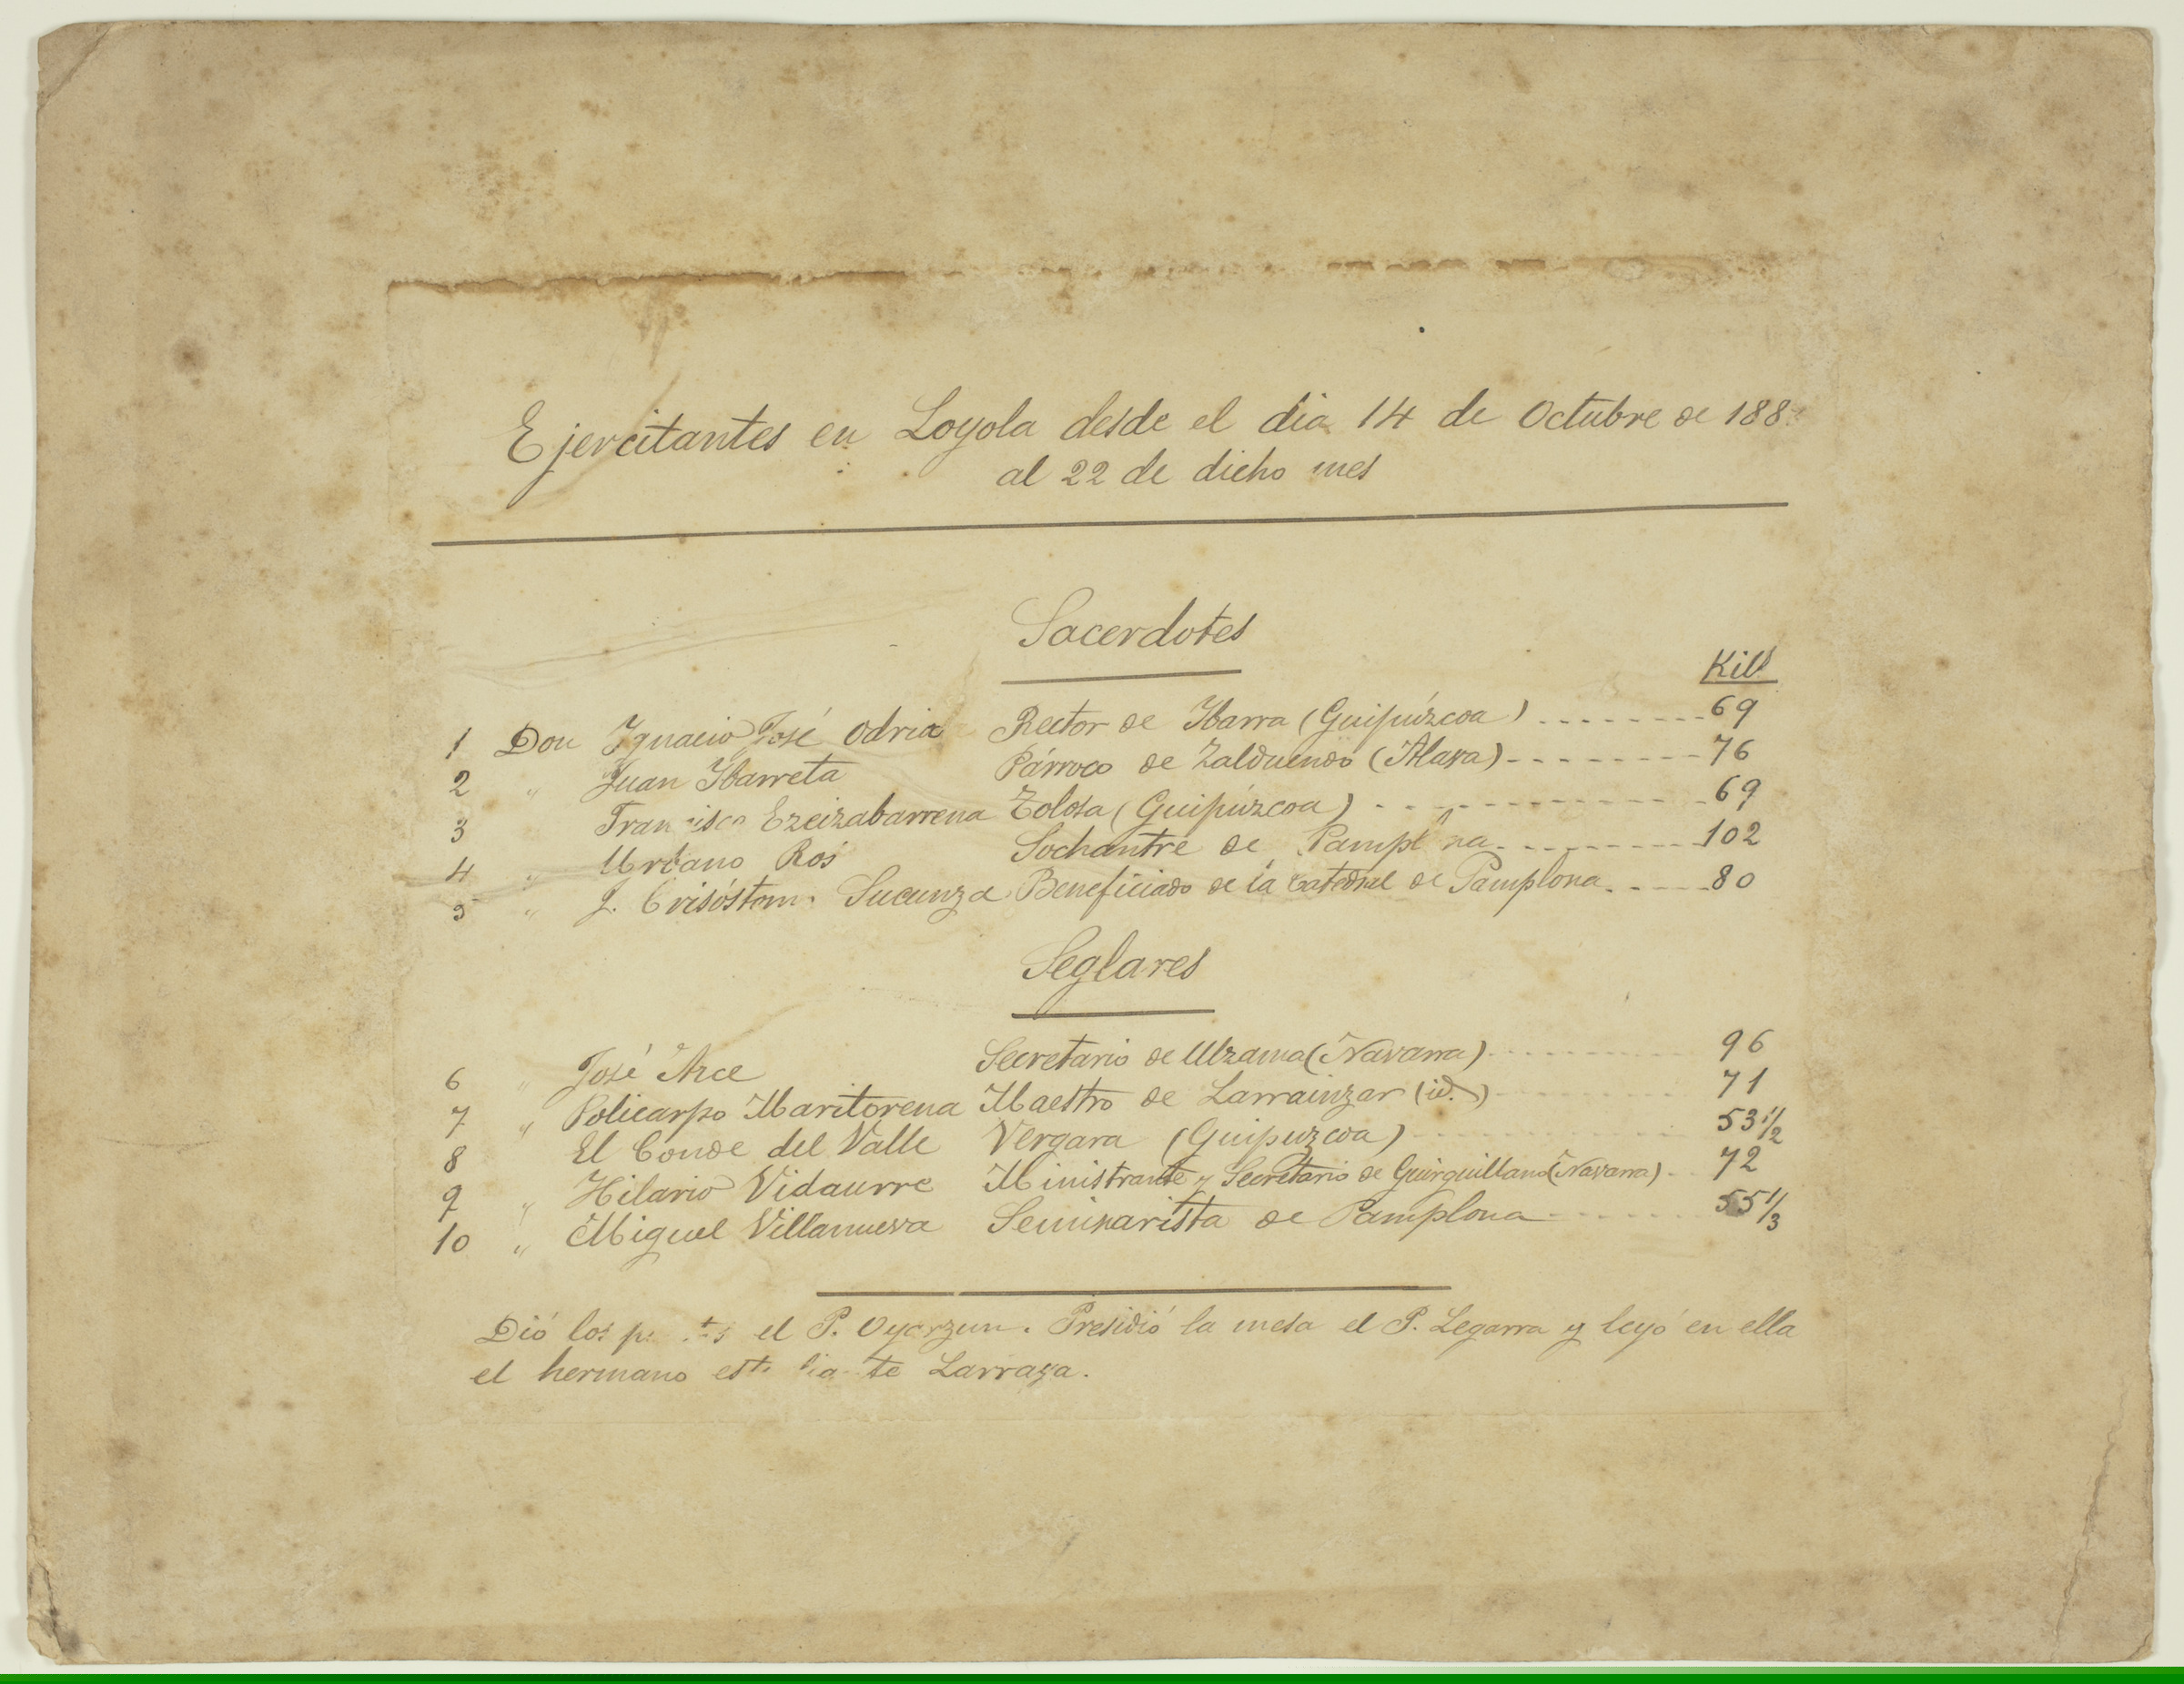 Ejercitantes en Loyola desde el dia 14 de Octubre de 188
al 22 de dicho mes
Sacerdotes
Kils
1 Don Ignacio José Odria Rector de Ibarra (Guipúzcoa) 69
2 " Juan Ibarreta Párroco de Zalduendo (Alava) 76
3 Francisco Ezeizabarrena Tolosa (Guipúzcoa) 69
4 " Urbano Ros Sochantre de Pamplona 102
5 " J. Crisóstomo Sucunza Beneficiado de la Catedral de Pamplona 80
Seglares
6 " José Arce Secretario de Ulzama (Navarra) 96
7 " Policarpo Maritorena Maestro de Larrainzar (id.) 71
8 El Conde del Valle Vergara (Guipuzcoa) 53 1/2
9 " Hilario Vidaurre Ministrante y Secretario de Guirguillano (Navarra) 72
10 " Miguel Villanueva Seminarista de Pamplona 55 1/3
Dió los el P. Oyarzun. Presidió la mesa el P. Legarra y leyó en ella
el hermano Larraza.